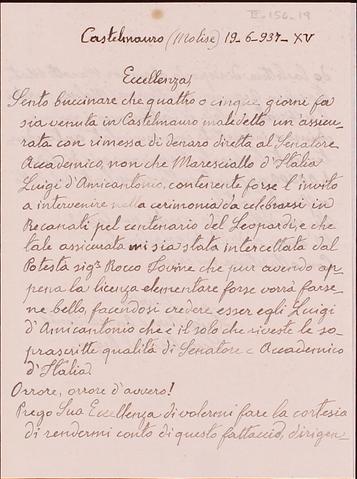 II-156-19
Castelmauro (Molise) 19-6-937-XV
Eccellenza,
Sento buccinare che quattro o cinque giorni fa
sia venuta in Castelmauro maledetto un'assicu-
rata con rimessa di denaro diretta al Senatore
Accademico, non che Maresciallo d'Italia
Luigi d'Amicantonio, contenente forse l'invito
a intervenire nella cerimonia da celebrarsi in
Recanati pel centenario del Leopardi, e che
tale assicurata mi sia stata intercettata dal
Potestà sigr Rocco Iovine che pur avendo ap-
pena la licenza elementare forse vorrà farse-
ne bello, facendosi credere esser egli Luigi
d'Amicantonio che è il solo che riveste le so-
prascritte qualità di Senatore e Accademico
d'Italia.
Orrore, orrore d'avvero!
Prego Sua Eccellenza di volermi fare la cortesia
di rendermi conto di questo fattaccio, dirigen-